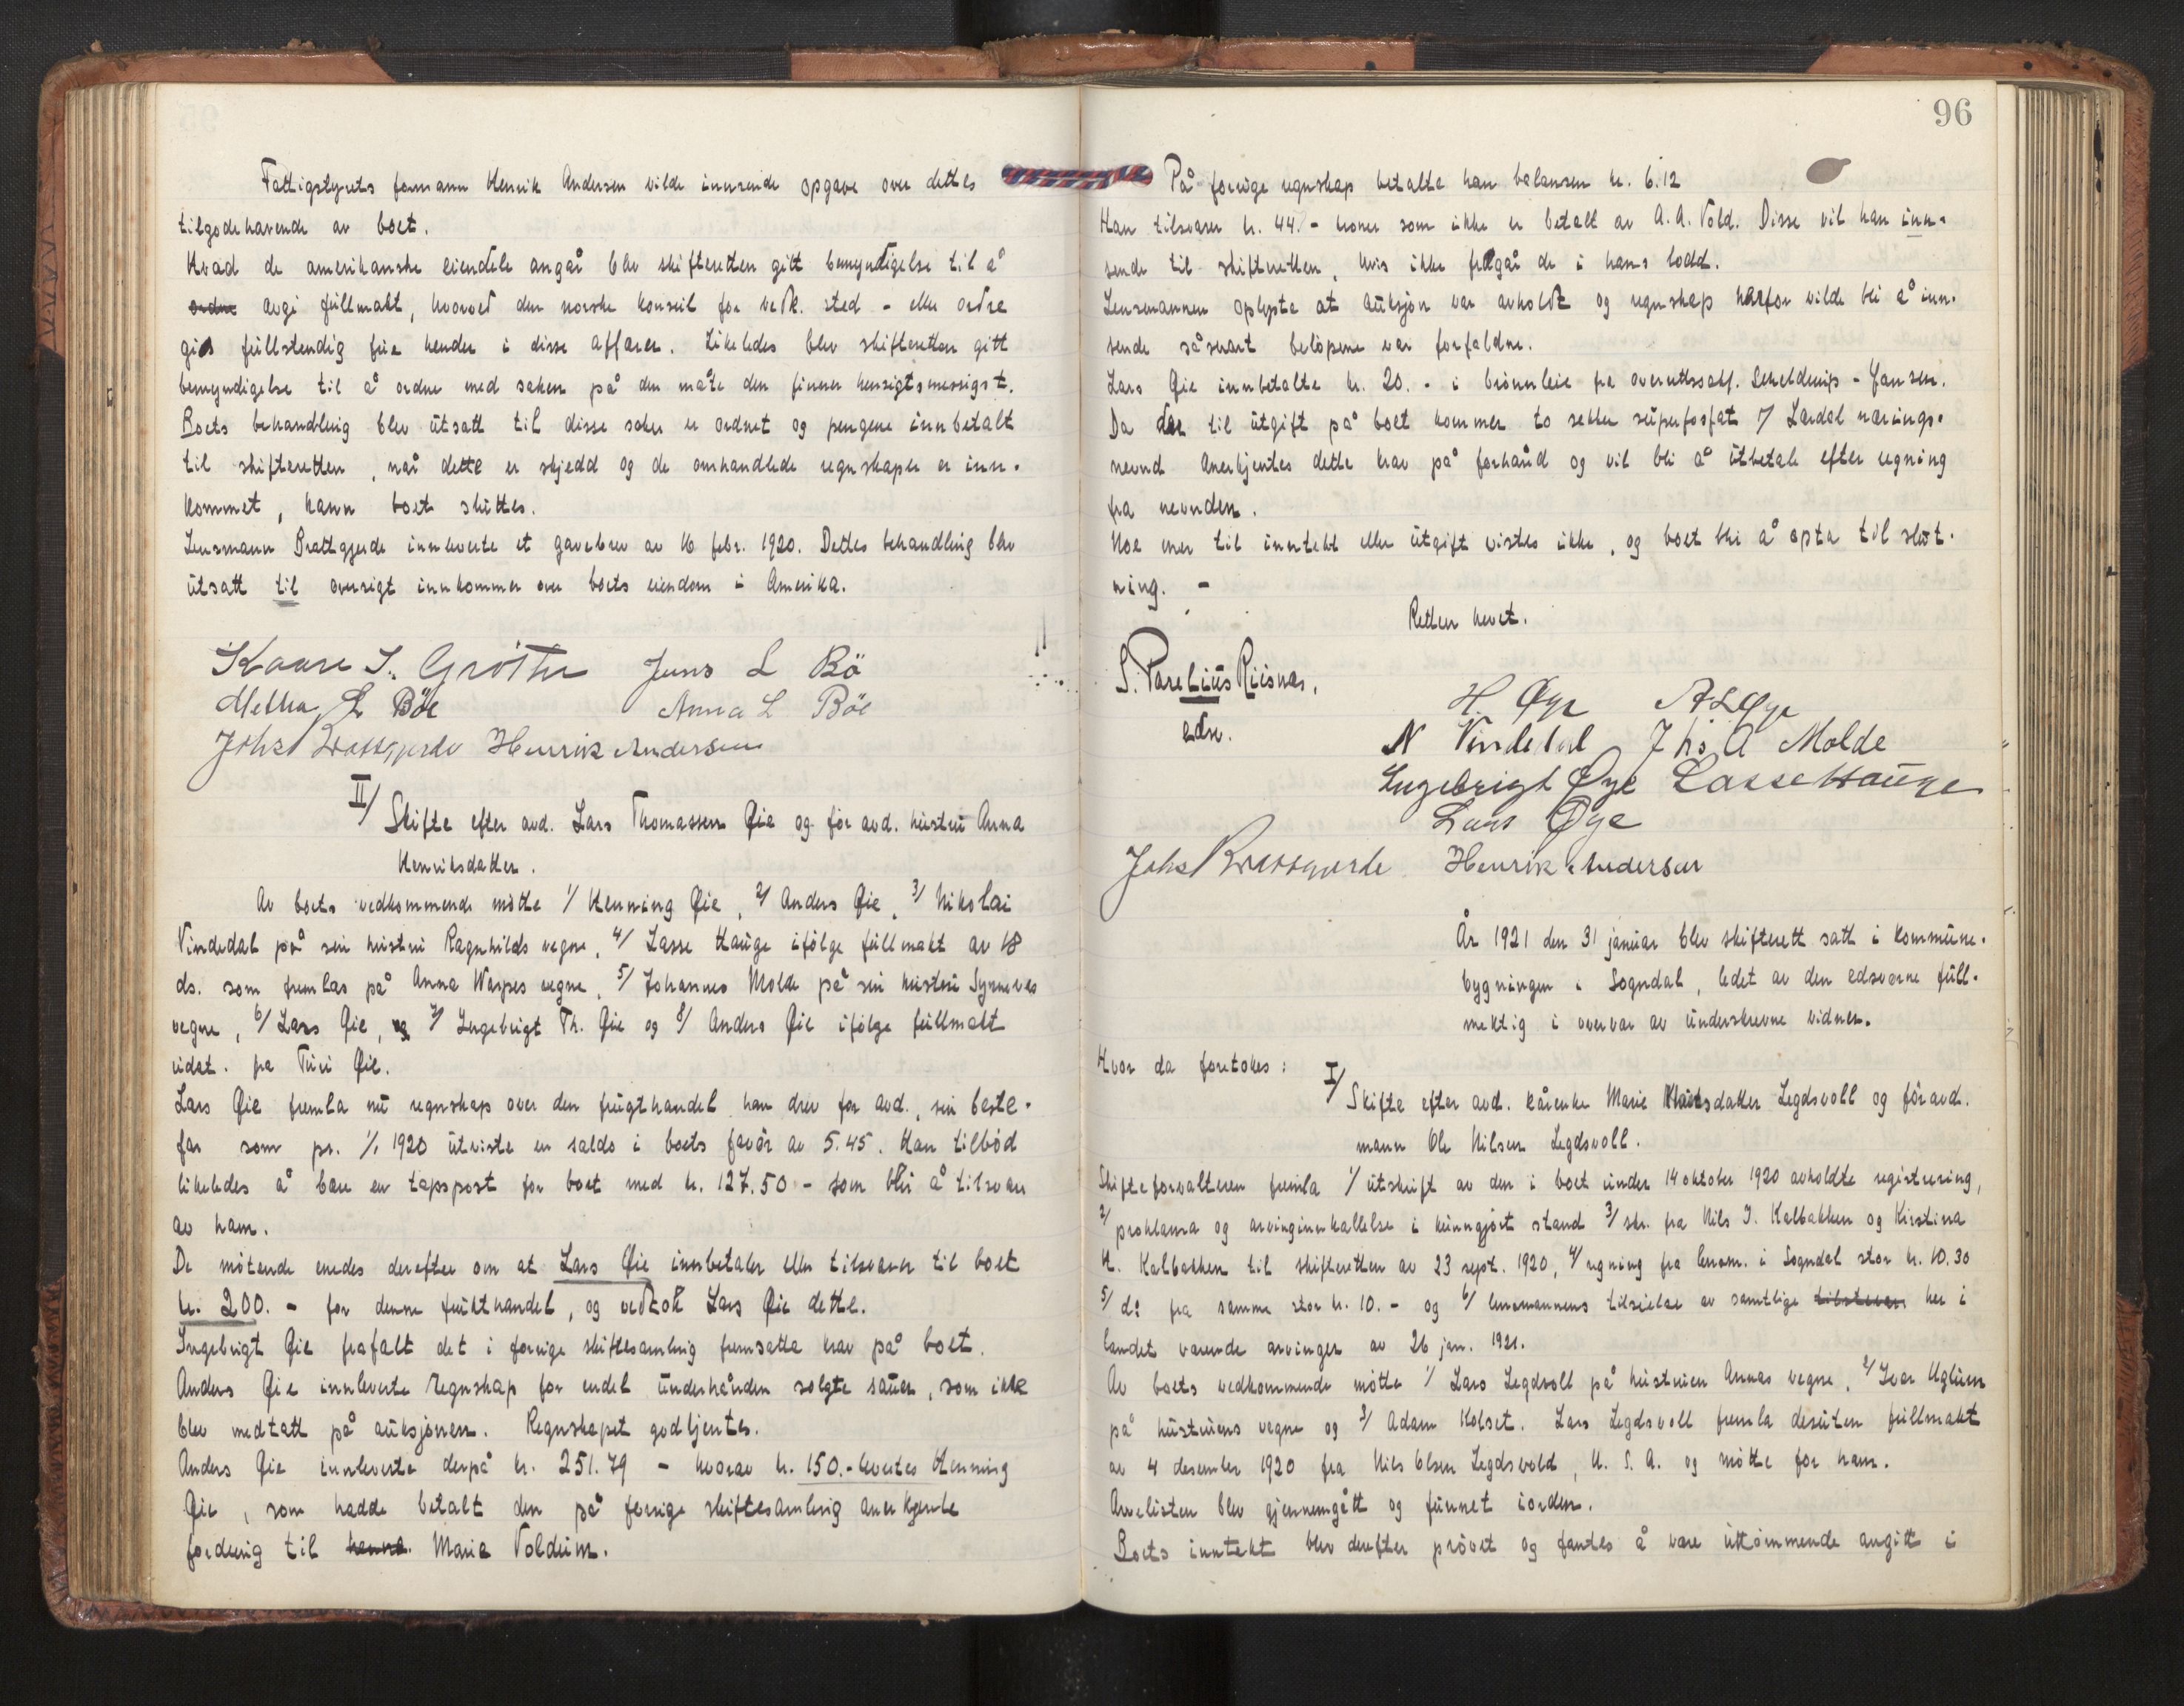 Fattigstyrets formann Henrik Andersen vilde innsende opgave over dettes
tilgodehavende av boet.
Hvad de amerikanske eiendele angår blev skifteretten gitt bemyndigelse til å
ordne avgi fullmakt, hvorved den norske konsul for vedk. sted - eller ordre
gis fullstendig frie hender i disse affærer. Likeledes blev skifteretten gitt
bemyndigelse til å ordne med saken på den måte den finner hensigtsmessigst.
Boets behandling blev utsatt til disse saker er ordnet og pengene innbetalt
til skifteretten, når dette er skjedd og de omhandlede regnskaper er inn-
kommet, kann boet sluttes.
Lensmann Brattgjerde innleverte et gavebrev av 16 febr. 1920. Dettes behandling blev
utsatt til oversigt innkommer over boets eiendom i Amerika.
Kaare I. Gröttu Jens L Bö
Metha L Böe Anna L Böe
Johs Brattgjerde Henrik Andersen
II/ Skifte efter avd. Lars Thomassen Øie og før avd. hustru Anna
Henriksdatter.
Av boets vedkommende møtte 1/ Henning Øie, 2/ Anders Øie, 3/ Nikolai
Vindedal på sin hustru Ragnhilds vegne, 4/ Lasse Hauge ifølge fullmakt av 18
ds. som fremlas på Anna Warpes vegne, 5/ Johannes Molde på sin hustru Synneves
vegne, 6/ Lars Øie, og 7/ Ingebrigt Th. Øie og 8/ Anders Øie ifølge fullmakt
udat. fra Turi Øie.
Lars Øie fremla nu regnskap over den frugthandel han drev for avd., sin beste-
far som pr. 1/1 1920 utviste en saldo i boets favør av 5.45. Han tilbød
likeledes å bære en tapspost for boet med kr. 127.50 - som blir å tilsvare
av ham.
De møtende enedes derefter om at Lars Øie innbetaler eller tilsvarer til boet
kr. 200. - for denne frukthandel, og vedtok Lars Øie dette.
Ingebrigt Øie frafalt det i forrige skiftesamling fremsatte krav på boet.
Anders Øie innleverte regnskap for endel underhånden solgte sauer, som ikke
blev medtatt på auksjonen. Regnskapet godkjentes.
Anders Øie innleverte derpå kr. 251.79 - hvorav kr. 150.- levertes Henning
Øie, som hadde betalt den på forrige skiftesamling anerkjente
fordring til henne. Marie Voldum.
96
På forrige regnskap betalte han balansen kr. 6.12
Han tilsvarer kr. 44.- kroner som ikke er betalt av A.A. Vold. Disse vil han inn-
sende til skifteretten, hvis ikke fragår de i hans lodd.
Lensmannen oplyste at auksjon var avholdt og regnskap herfor vilde bli å inn-
sende såsnart beløpene var forfaldne.
Lars Øie innbetalte kr. 20. - i brønnleie fra overrettssakf. Scheldrup - Jansen.
Da der til utgift på boet kommer to sekker superfosfat 7/ Lærdal nærings-
nevnd anerkjentes dette krav på forhånd og vil bli å utbetale efter regning
fra nevnden.
Noe mer til inntekt eller utgift vistes ikke, og boet blir å opta til slut-
ning. -
Retten hevet.
S. Parelius Riisnæs,
edsv.
H. Øye A L Øye
N Vindedal Jhs A Molde
Ingebrigt Øye Lasse Hauge
Lars Øye
Johs Brattgjerde Henrik Andersen
År 1921 den 31 januar blev skifterett satt i kommune-
bygningen i Sogndal, ledet av den edsvorne full-
mektig i overvær av underskrevne vidner.
Hvor da foretokes:
I/ Skifte efter avd. kårenke Marie Knutsdatter Legdsvoll og föravd.
mann Ole Nilsen Legdsvoll.
Skifteforvalteren fremla 1/ utskrift av den i boet under 14 oktober 1920 avholdte registrering,
2/ proklama og arvinginnkallelse i kunngjort stand 3/ skr. fra Nils I. Kalbakken og Kirstina
K. Kalbakken til skifteretten av 23 sept. 1920, 4/ regning fra lensm. i Sogndal stor kr. 10.30
5/ do fra samme stor kr. 10.- og 6/ lensmannens tilsielse av samtlige tilstever her i
landet værende arvinger av 26 jan. 1921.
Av boets vedkommende møtte 1/ Lars Legdsvoll på hustruen Annas vegne, 2/ Ivar Uglum
på hustruens vegne og 3/ Adam Kolset. Lars Legdsvoll fremla desuten fullmakt
av 4 desember 1920 fra Nils Olsen Legdsvold, U. S. A. og møtte for ham.
Arvelisten blev gjennemgått og funnet iorden.
Boets inntekt blev derefter prøvet og fantes å være uttømmende angitt i